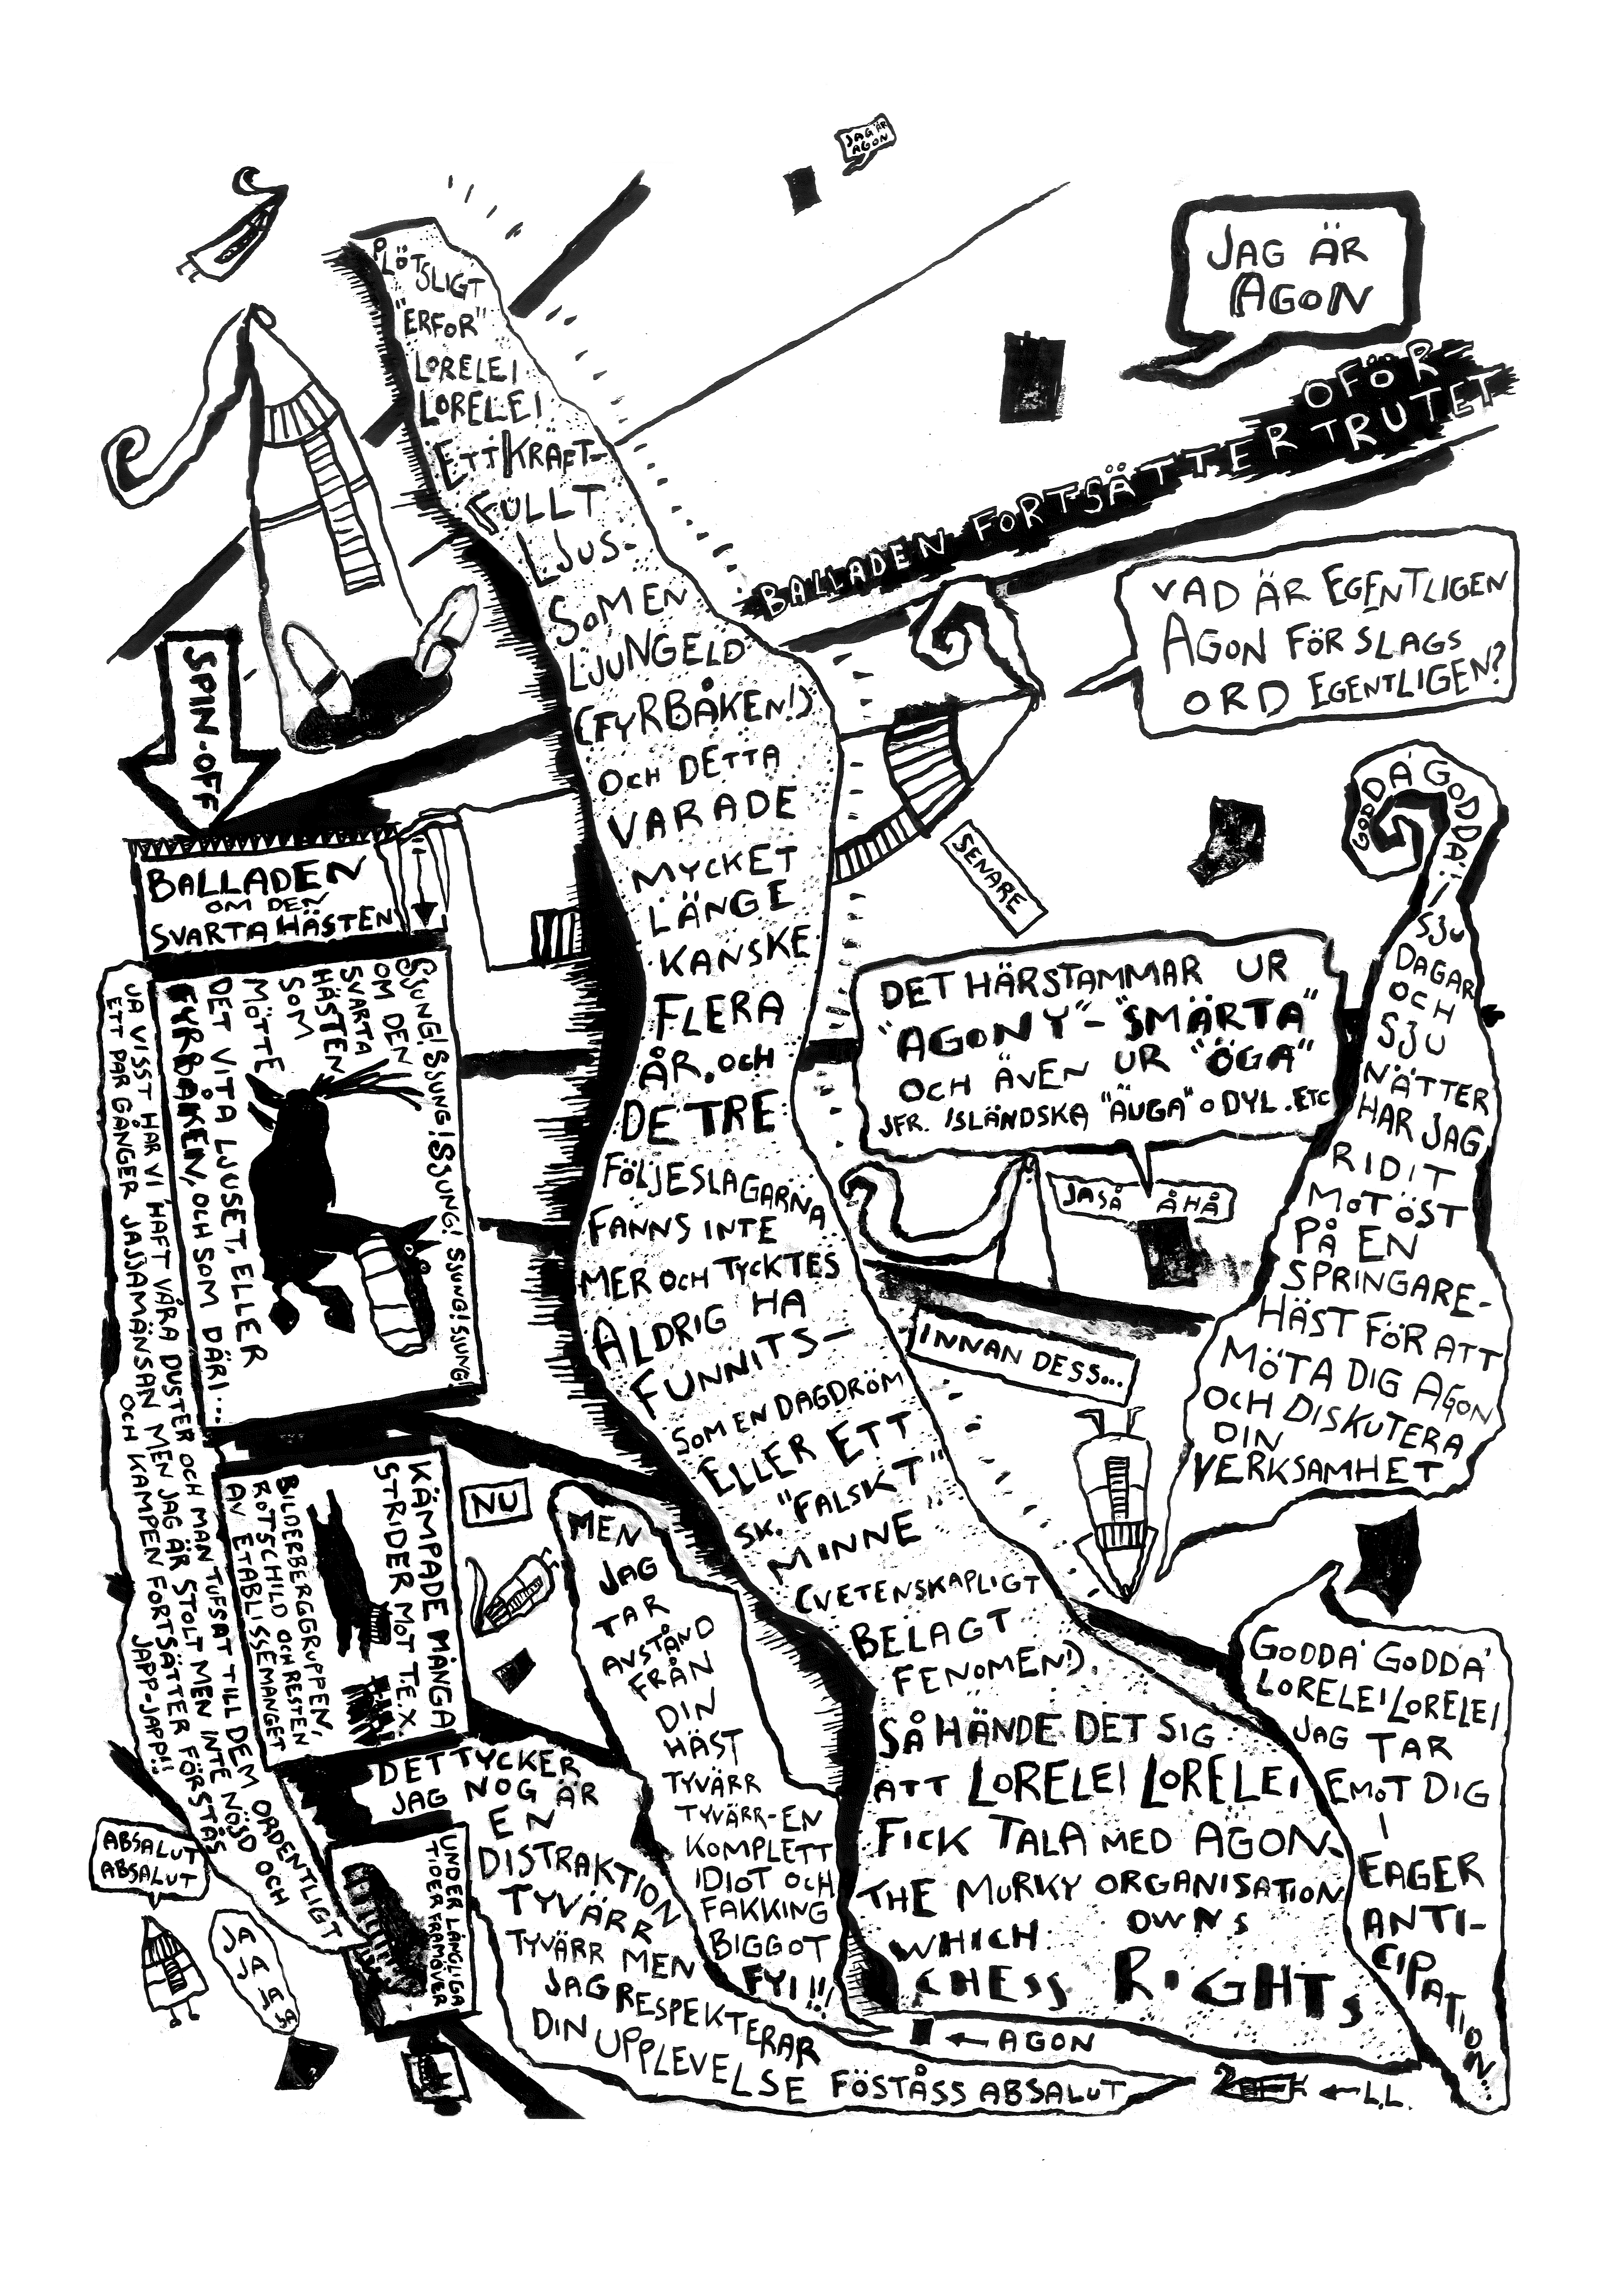 JAG ÄR
AGON
JAG ÄR
AGON
BALLADEN FORTSÄTTER OFÖR-
TRUTET
PLÖTSLIGT
"ERFOR"
LORELEI
LORELEI
ETT KRAFT-
FULLT
LJUS-
SOM EN
LJUNGELD
(FYRBÅKEN!)
OCH DETTA
VARADE
MYCKET
LÄNGE
KANSKE
FLERA
ÅR. OCH
DE TRE
FÖLJESLAGARNA
FANNS INTE
MER OCH TYCKTES
ALDRIG HA
FUNNITS-
SOM EN DAGDRÖM
ELLER ETT
SK. "FALSKT"
MINNE
(VETENSKAPLIGT
BELAGT
FENOMEN!).
SÅ HÄNDE DET SIG
ATT LORELEI LORELEI
FICK TALA MED AGON.
THE MURKY ORGANISATION
WHICH OWNS
CHESS RIGHTS
VAD ÄR EGENTLIGEN
AGON FÖR SLAGS
ORD EGENTLIGEN?
SENARE
DET HÄRSTAMMAR UR
"AGONY"-"SMÄRTA"
OCH ÄVEN UR "ÖGA"
JFR. ISLÄNDSKA "ÄUGA" O DYL. ETC
JASÅ ÅHÅ
INNAN DESS...
GODDA' GODDA'!
SJU
DAGAR
OCH
SJU
NÄTTER
HAR JAG
RIDIT
MOT ÖST
PÅ EN
SPRINGARE-
HÄST FÖR ATT
MÖTA DIG AGON
OCH DISKUTERA
DIN
VERKSAMHET
GODDA' GODDA'
LORELEI LORELEI
JAG TAR
EMOT DIG
I
EAGER
ANTI-
CIPATION...
SPIN-OFF
BALLADEN
OM DEN
SVARTA HÄSTEN
SJUNG! SJUNG! SJUNG! SJUNG! SJUNG! SJUNG!
OM DEN
SVARTA
HÄSTEN
SOM
MÖTTE
DET VITA LJUSET, ELLER
FYRBÅKEN, OCH SOM DÄRI...
JA VISST HAR VI HAFT VÅRA DUSTER OCH MAN TUFSAT TILL DEM ORDENTLIGT
ETT PAR GÅNGER JAJJAMÄNSAN MEN JAG ÄR STOLT MEN INTE NÖJD OCH
OCH KAMPEN FORTSÄTTER FÖRSTÅS
JAPP-JAPP!!
KÄMPADE MÅNGA
STRIDER MOT T.EX.
BILDERBERGGRUPPEN,
ROTSCHILD OCH RESTEN
AV ETABLISSEMANGET
UNDER LÅNGLIGA
TIDER FRAMÖVER
NU
MEN
JAG
TAR
AVSTÅND
FRÅN
DIN
HÄST
TYVÄRR
TYVÄRR-EN
KOMPLETT
IDIOT OCH
FAKKING
BIGGOT
FYI!!!
DET TYCKER
JAG NOG ÄR
EN
DISTRAKTION
TYVÄRR
TYVÄRR MEN
JAG RESPEKTERAR
DIN UPPLEVELSE FÖSTÅSS ABSALUT
ABSALUT
ABSALUT
JA
JA
JA
JA
← AGON
← L.L.